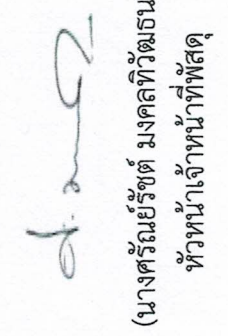 (นางศรัณย์รัชต์ มงคลทิวัฒธน
หัวหน้าเจ้าหน้าที่พัสดุ